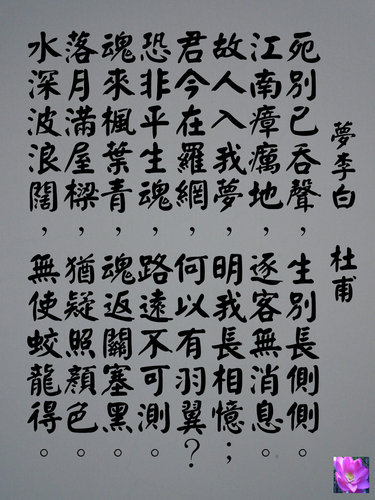 夢李白 杜甫
死別已吞聲，生別長側側。
江南瘴癘地，逐客無消息。
故人入我夢，明我長相憶；
君今在羅網，何以有羽翼？
恐非平生魂，路遠不可測。
魂來楓葉青，魂返關塞黑。
落月滿屋樑，猶疑照顏色。
水深波浪闊，無使蛟龍得。